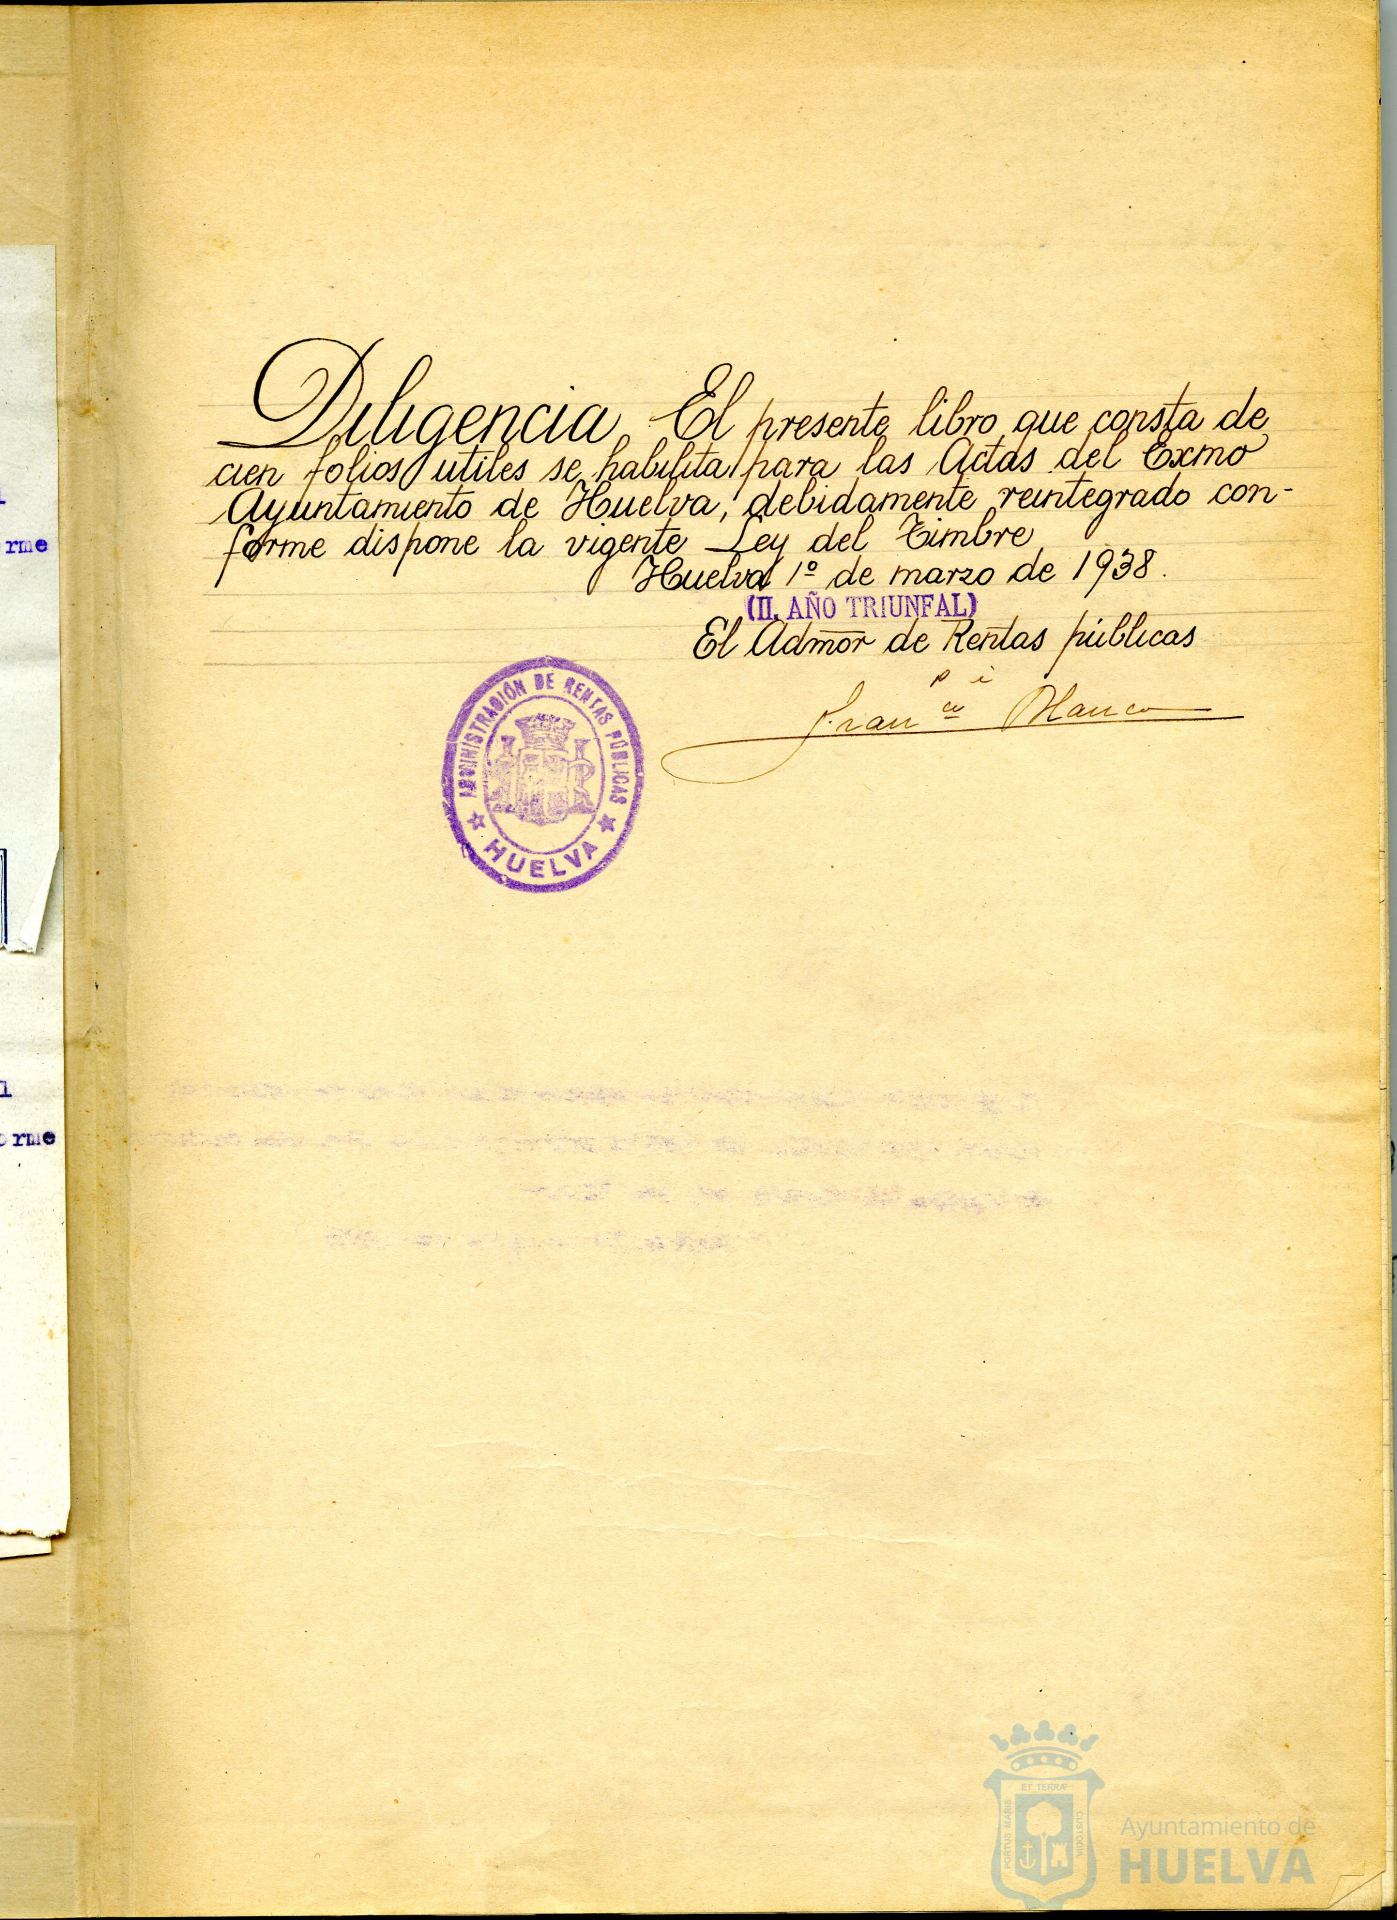 Diligencia El presente libro que consta de
cien folios utiles se habilita para las Actas del Exmo
Ayuntamiento de Huelva, debidamente reintegrado con-
forme dispone la vigente Ley del Timbre
Huelva 1º de marzo de 1938.
(II. AÑO TRIUNFAL)
El Admor de Rentas públicas
p i
Franco Blanco
ADMINISTRACIÓN DE RENTAS PÚBLICAS
HUELVA
rme
l
orme
ET TERRÆ
PORTUS MARIS
CUSTODIA
Ayuntamiento de
HUELVA